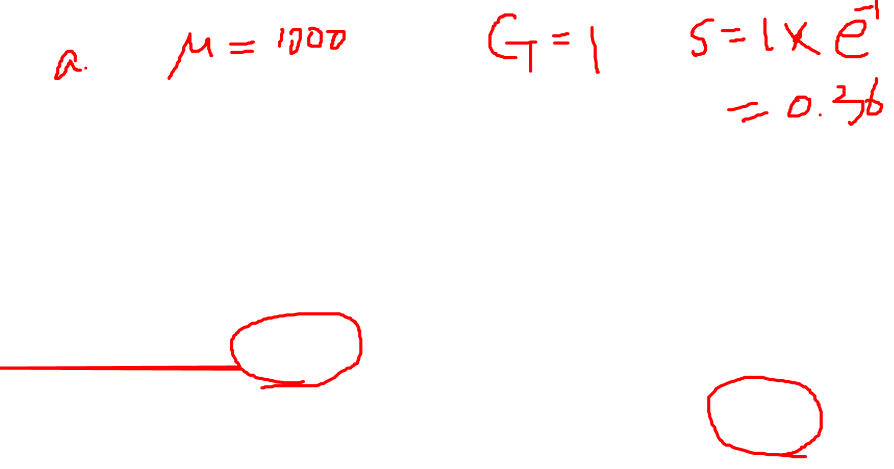 a. μ = 1000 G = 1 S = 1 × e⁻¹
= 0.36